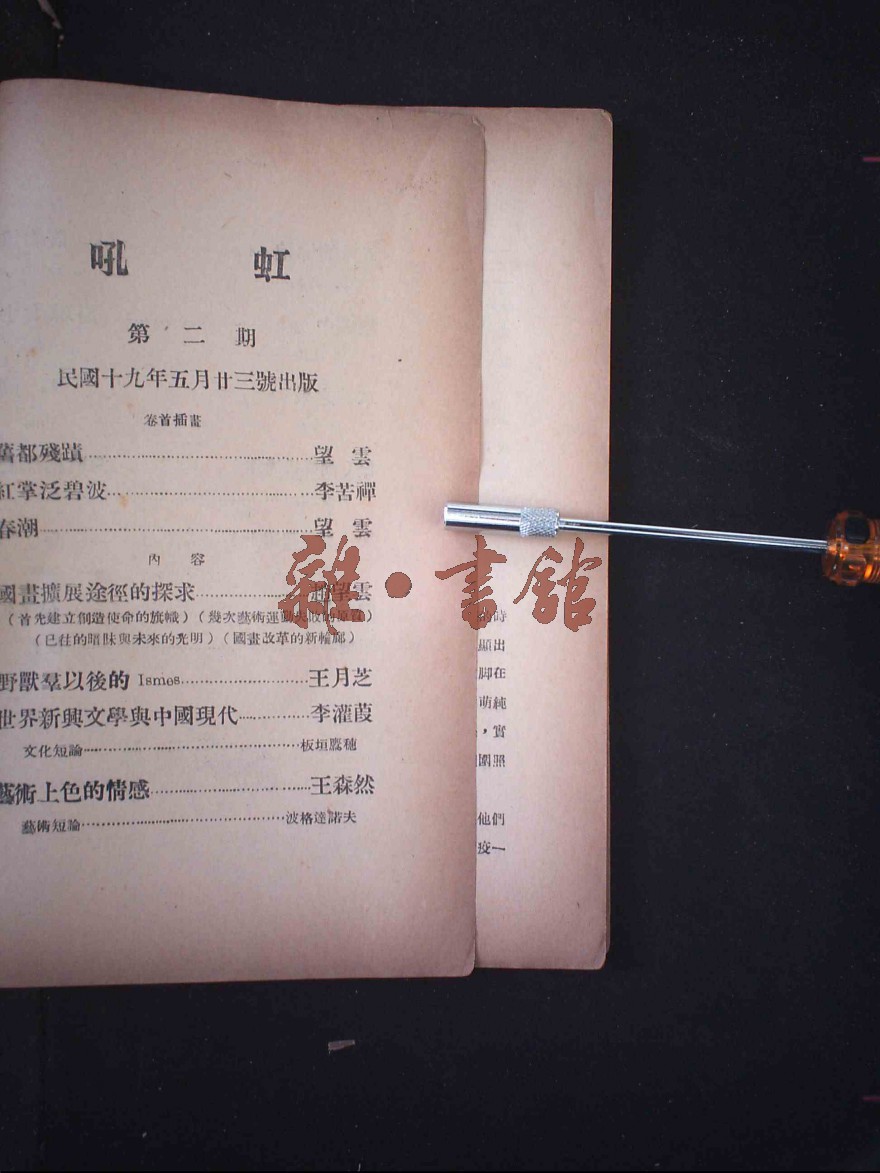 吼　虹
第二期
民國十九年五月廿三號出版
卷首插畫
舊都殘蹟……望雲
紅掌泛碧波……李苦禪
春潮……望雲
內容
國畫擴展途徑的探求……趙望雲
(首先建立創造使命的旗幟)(幾次藝術運動失敗的原因)
(已往的暗昧與未來的光明)(國畫改革的新輪廓)
野獸羣以後的 Ismes……王月芝
世界新興文學與中國現代……李灌葭
文化短論……板垣鷹穗
藝術上色的情感……王森然
藝術短論……波格達諾夫
時
顯出
脚在
萌純
，實
國照
他們
疫一
雜·書館